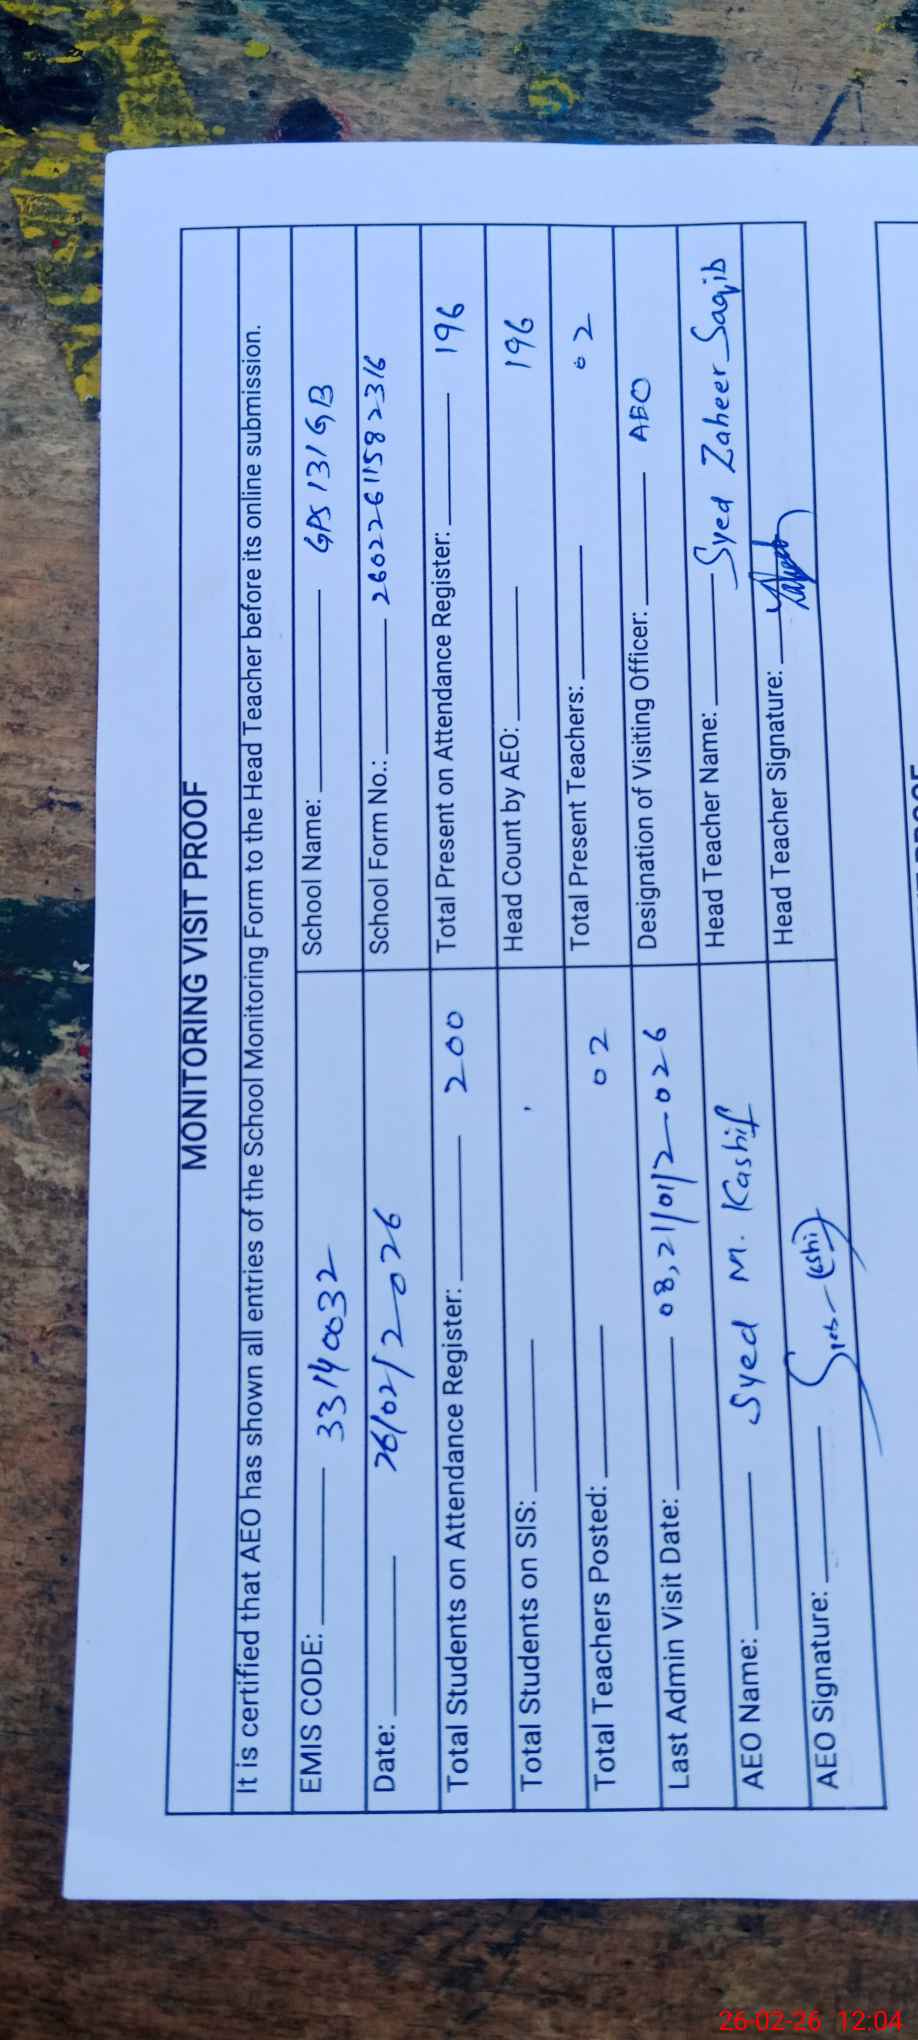 MONITORING VISIT PROOF
It is certified that AEO has shown all entries of the School Monitoring Form to the Head Teacher before its online submission.
EMIS CODE: 33140032 School Name: GPS 131 GB
Date: 26/02/2026 School Form No.: 26022611582316
Total Students on Attendance Register: 200 Total Present on Attendance Register: 196
Total Students on SIS: Head Count by AEO: 196
Total Teachers Posted: 02 Total Present Teachers: 02
Last Admin Visit Date: 08,21/01/2026 Designation of Visiting Officer: AEO
AEO Name: Syed M. Kashif Head Teacher Name: Syed Zaheer Saqib
AEO Signature: Head Teacher Signature:
26-02-26 12:04